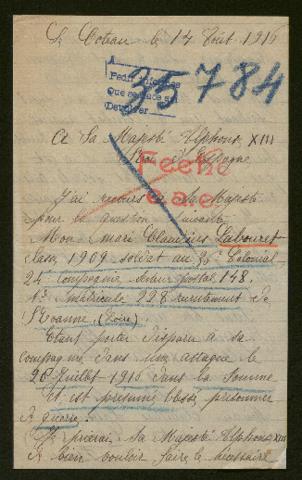 Le Coteau le 17 Août 1916
35784
A Sa Majesté Alphonse XIII
Roi d'Espagne
Feehé
e.a.e.
J'ai recours à Sa Majesté
pour
Mon mari Claudius Labouret
classe 1909 soldat au 36e Colonial
24 compagnie secteur postal 148.
No matricule 228 recrutement de
Roanne, (Loire)
Etant porter disparu à sa
compagnie dans une attaque le
20 Juillet 1916 dans la Somme
et est présumé blessé prisonnier
de guerre.
Je prierais Sa Majesté Alphonse XIII
de bien vouloir faire le nécessaire